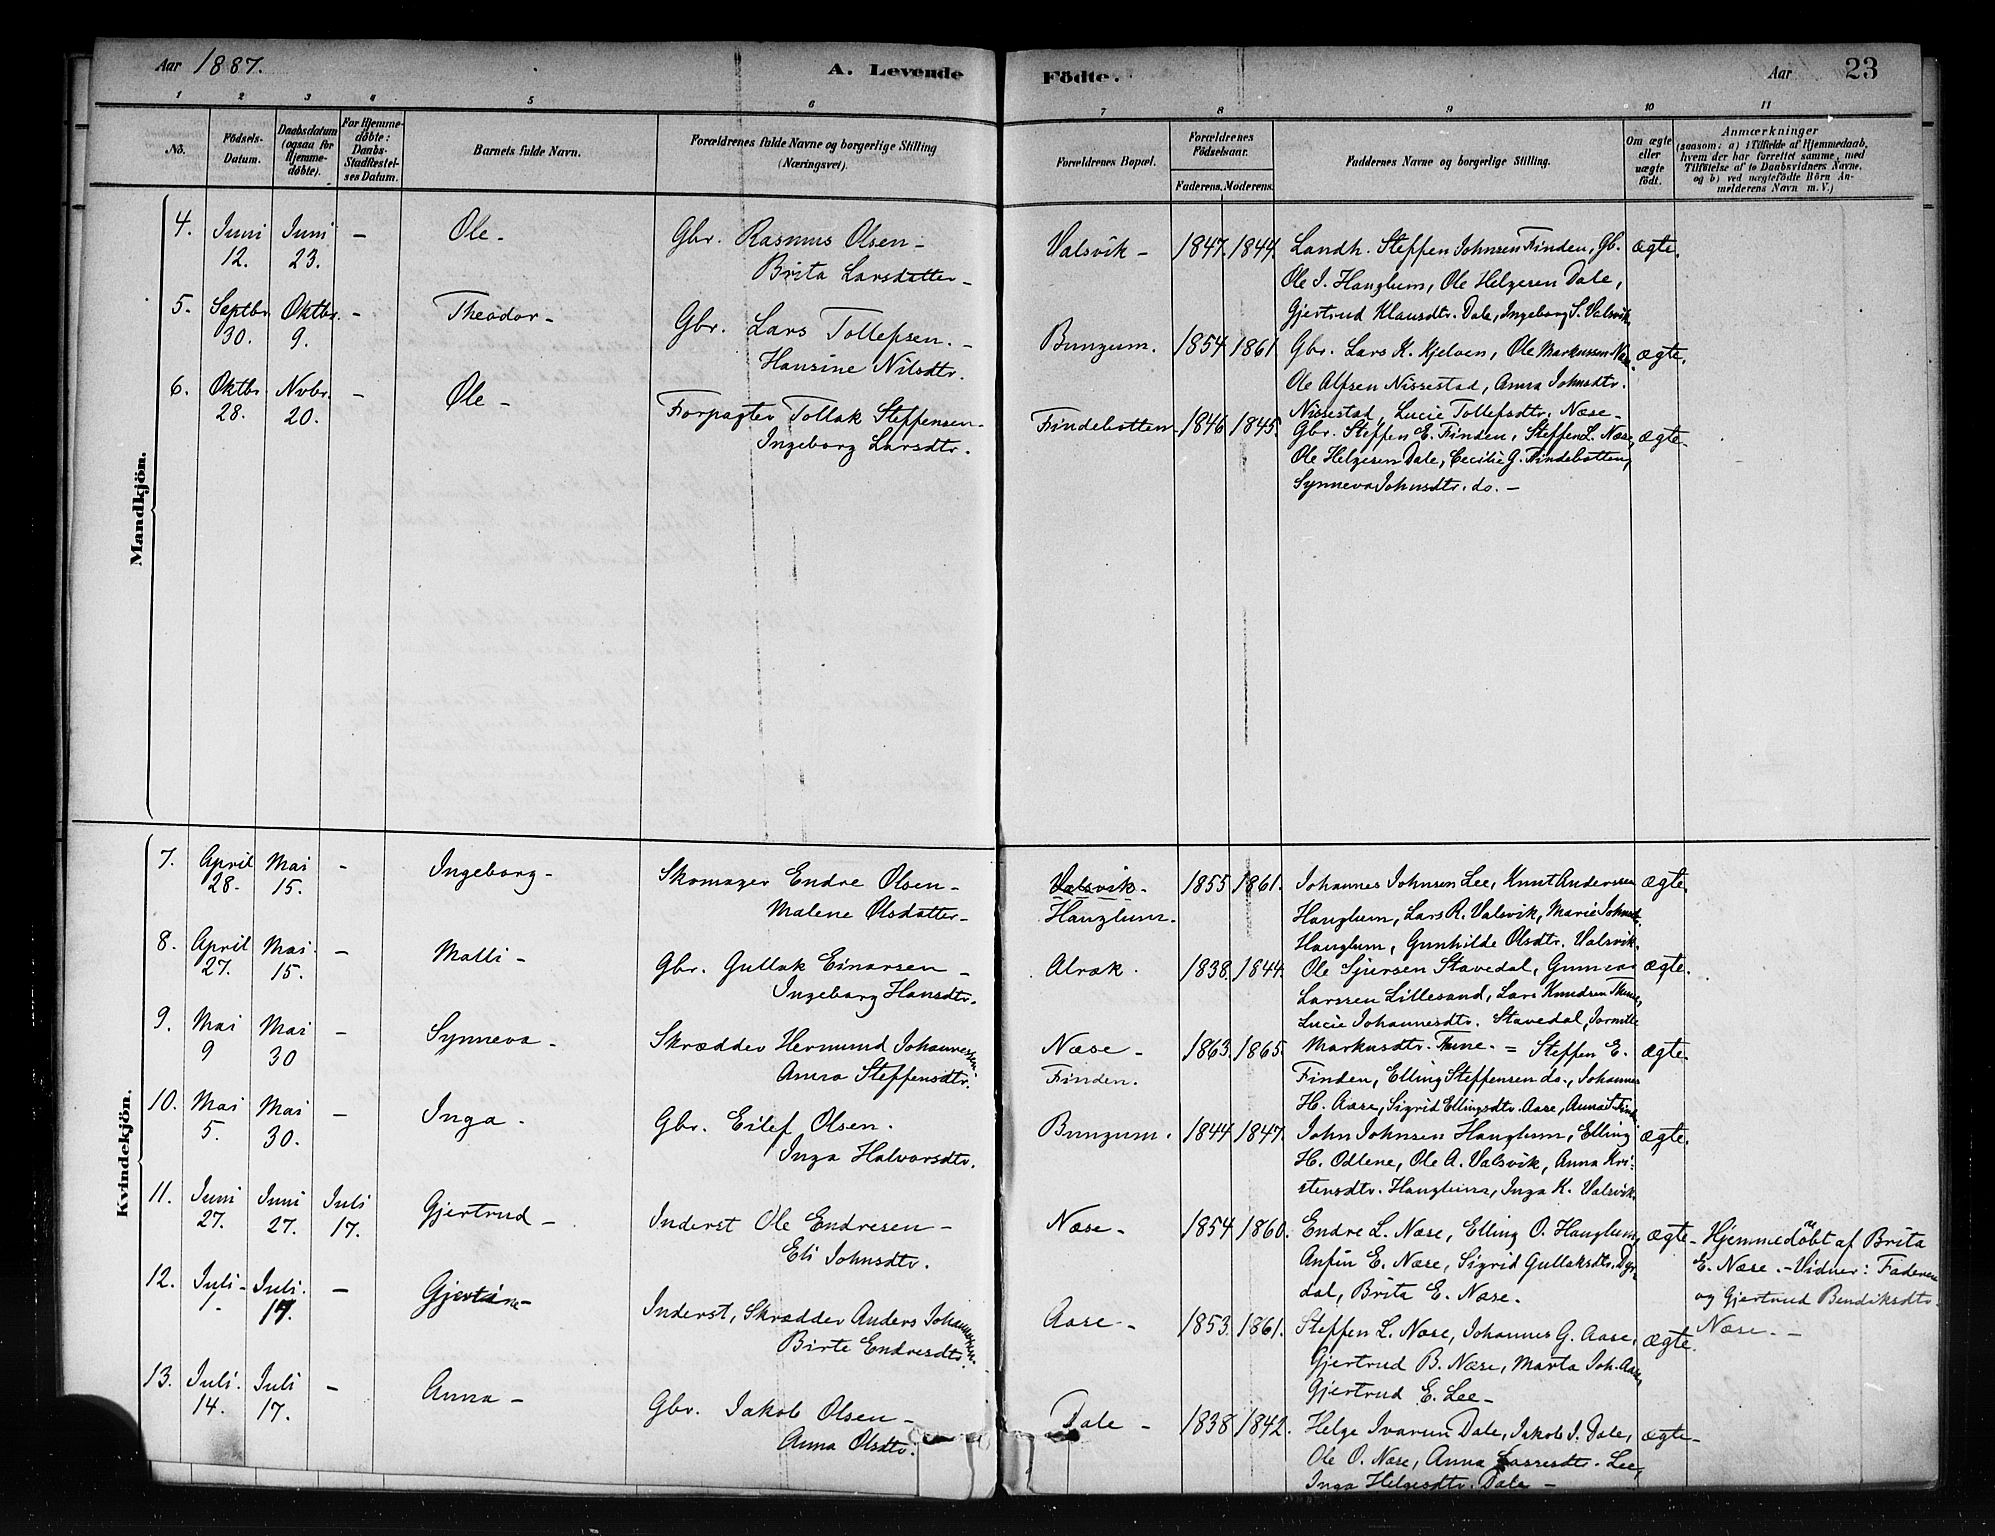 Aar 1887.
A. Levende
Födte.
Aar
23
1 2 3 4 5 6 7 8 9 10 11
No.
Födsels-
Datum.
Daabsdatum
(ogsaa for
Hjemme-
döbte).
For Hjemme-
döbte:
Daabs-
Stadfæstel-
ses Datum.
Barnets fulde Navn.
Forældrenes fulde Navne og borgerlige Stilling
(Næringsvei).
Forældrenes Bopæl.
Forældrenes
Födselsaar.
Faderens. Moderens.
Faddernes Navne og borgerlige Stilling.
Om ægte
eller
uægte
födt.
Anmærkninger
(saasom: a) i Tilfælde af Hjemmedaab,
hvem der har forrettet samme, med
Tilföielse af to Daabsvidners Navne,
og b) ved uægtefödte Börn An-
melderens Navn m. V.)
Mandkjön.
4. Juni 12. Juni 23. - Ole -
Gbr. Rasmus Olsen -
Brita Larsdatter -
Valsvik - 1847. 1844.
Landh. Steffen Johnsen Finden, Gb.
Ole J. Hanglum, Ole Helgesen Dale,
Gjertrud Klausdtr. Dale, Ingeborg S. Valsvik
ægte.
5. Septbr. 30. Oktbr. 9. - Theodor -
Gbr. Lars Tollefsen. -
Hansine Nilsdtr.
Bungum. 1854. 1861
Gbr. Lars K. Kjelven, Ole Markussen Næse
Ole Alfsen Nissestad, Anna Johnsdtr.
Nissestad, Lucie Tollefsdtr. Næse -
ægte.
6. Oktbr. 28. Novbr. 20. - Ole -
Forpagter Tollak Steffensen -
Ingeborg Larsdtr.
Findebotten - 1846. 1845.
Gbr. Steffen E. Finden, Steffen L. Næse,
Ole Helgesen Dale, Cecilie G. Findebotten,
Synneva Johnsdtr. do. -
ægte -
Kvindekjön.
7. April 28. Mai 15. - Ingeborg -
Skomager Endre Olsen -
Malene Olsdatter -
Valsvik -
Hanglum. 1855. 1861.
Johannes Johnsen Lee, Knut Anderssen
Hanglum, Lars R. Valsvik, Marie Johnsd.
Hanglum, Gunhilde Olsdtr. Valsvik.
ægte.
8. April 27. Mai 15. - Malli -
Gbr. Gullak Einarsen -
Ingeborg Hansdtr.
Alrek. 1838. 1844.
Ole Sjursen Stavedal, Gunnar
Larssen Lillesand, Lars Knudsen Thune,
Lucie Johannesdtr. Stavedal, Jornille
Markusdtr. Thune. =
ægte.
9. Mai 9 Mai 30 - Synneva -
Skrædder Hermund Johannessen.
Anna Steffensdtr.
Næse -
Finden. 1863. 1865.
Steffen E.
Finden, Elling Steffensen do., Johannes
H. Aase, Sigrid Ellingsdtr. Aase, Anna S. Find.
ægte -
10. Mai 5. Mai 30. - Inga -
Gbr. Eilef Olsen.
Inga Halvorsdtr.
Bungum. 1844. 1847.
John Johnsen Hanglum, Elling
H. Odlene, Ole A. Valsvik, Anna Kri-
stensdtr. Hanglum, Inga K. Valsvik.
ægte.
11. Juni 27. Juni 27. Juli 17. Gjertrud -
Inderst Ole Endresen -
Eli Johnsdtr.
Næse - 1854. 1860.
Endre L. Næse, Elling O. Hanglum,
Anfin E. Næse, Sigrid Gullaksdtr. Dyr-
dal, Brita E. Næse.
ægte -
Hjemmedöbt af Brita
E. Næse. - Vidner: Faderen
og Gjertrud Bendiksdtr.
Næse. -
12. Juli - Juli. 17. - Gjertine -
Inderst, Skrædder Anders Johannessen.
Birte Endresdtr.
Aase - 1853. 1861.
Steffen L. Næse, Johannes G. Aase,
Gjertrud B. Næse, Marta Joh. Aase,
Gjertrud E. Lee -
ægte.
13. Juli. 14. Juli 17. - Anna -
Gbr. Jakob Olsen -
Anna Olsdtr.
Dale - 1838. 1842.
Helge Ivarsen Dale, Jakob J. Dale,
Ole O. Næse, Anna Lassesdtr. Lee,
Inga Helgesdtr. Dale -
ægte -